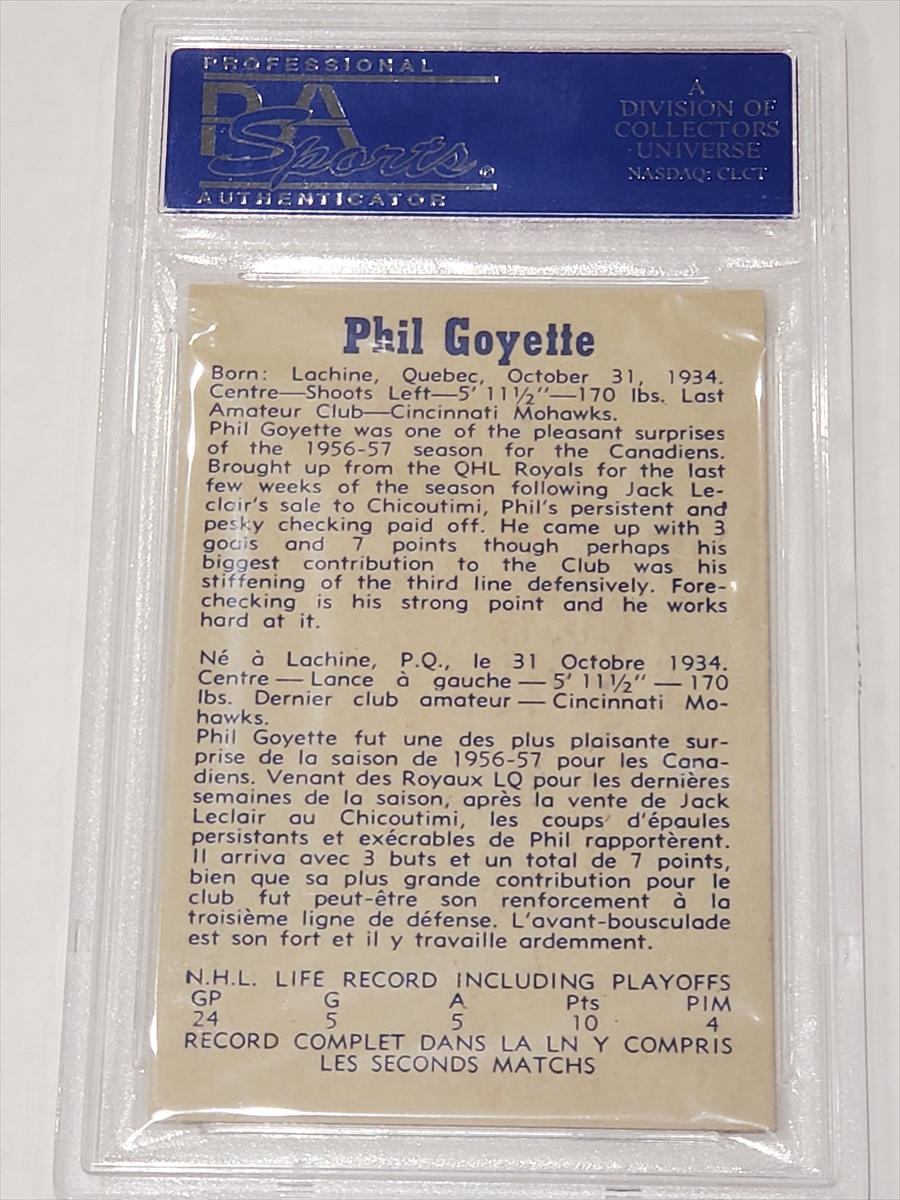 PROFESSIONAL
PSA
Sports®
AUTHENTICATOR
A
DIVISION OF
COLLECTORS
UNIVERSE
NASDAQ: CLCT
Phil Goyette
Born: Lachine, Quebec, October 31, 1934.
Centre—Shoots Left—5' 11½"—170 lbs. Last
Amateur Club—Cincinnati Mohawks.
Phil Goyette was one of the pleasant surprises
of the 1956-57 season for the Canadiens.
Brought up from the QHL Royals for the last
few weeks of the season following Jack Le-
clair's sale to Chicoutimi, Phil's persistent and
pesky checking paid off. He came up with 3
goals and 7 points though perhaps his
biggest contribution to the Club was his
stiffening of the third line defensively. Fore-
checking is his strong point and he works
hard at it.
Né à Lachine, P.Q., le 31 Octobre 1934.
Centre — Lance à gauche — 5' 11½" — 170
lbs. Dernier club amateur — Cincinnati Mo-
hawks.
Phil Goyette fut une des plus plaisante sur-
prise de la saison de 1956-57 pour les Cana-
diens. Venant des Royaux LQ pour les dernières
semaines de la saison, après la vente de Jack
Leclair au Chicoutimi, les coups d'épaules
persistants et exécrables de Phil rapportèrent.
Il arriva avec 3 buts et un total de 7 points,
bien que sa plus grande contribution pour le
club fut peut-être son renforcement à la
troisième ligne de défense. L'avant-bousculade
est son fort et il y travaille ardemment.
N.H.L. LIFE RECORD INCLUDING PLAYOFFS
GP G A Pts PIM
24 5 5 10 4
RECORD COMPLET DANS LA LN Y COMPRIS
LES SECONDS MATCHS